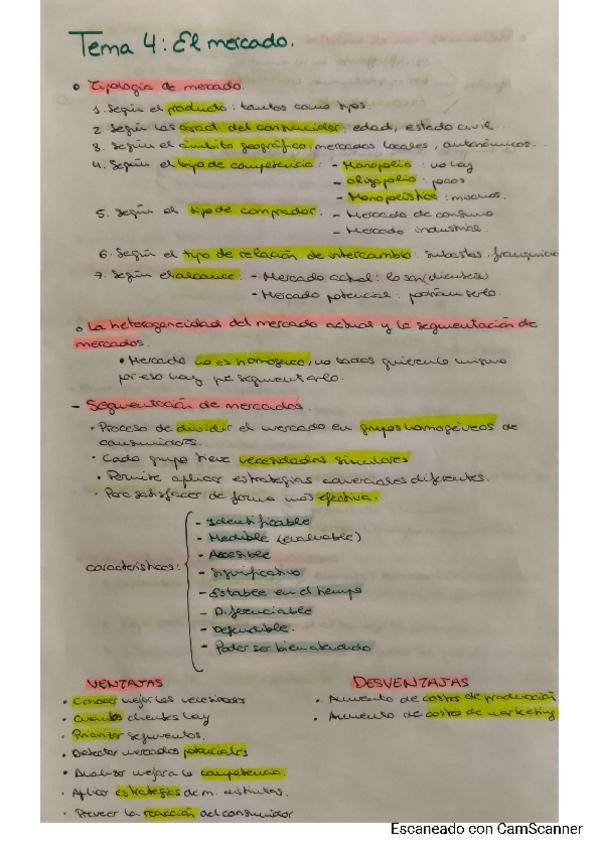 Tema 4: El mercado.
• Tipología de mercado.
1. Según el producto: tantos como tipos.
2. Según las caract. del consumidor: edad, estado civil...
3. Según el ámbito geográfico: mercados locales, autonómicos...
4. Según el tipo de competencia: - Monopolio: no hay
- oligopolio: pocos
- Monopolística: muchos.
5. Según el tipo de comprador: - Mercado de consumo
- Mercado industrial.
6. Según el tipo de relación de intercambio: subastas, franquicia
7. Según el alcance: - Mercado actual: lo son (clientes)
- Mercado potencial: podrían serlo.
• La heterogeneidad del mercado actual y la segmentación de
mercados.
• Mercado no es homogéneo, no todos quieren lo mismo
por eso hay que segmentarlo.
- Segmentación de mercados.
• Proceso de dividir el mercado en grupos homogéneos de
consumidores.
• Cada grupo tiene necesidades similares
• Permite aplicar estrategias comerciales diferentes.
• Para satisfacer de forma más efectiva.
características:
- Identificable
- Medible (evaluable)
- Accesible
- Significativo
- Estable en el tiempo
- Diferenciable
- Defendible.
- Poder ser bien atendido
VENTAJAS
• Conocer mejor las necesidades
• Cuantos clientes hay
• Priorizar segmentos.
• Detectar mercados potenciales
• Analizar mejor a la competencia.
• Aplicar estrategias de m. distintas.
• Preveer la reacción del consumidor
DESVENTAJAS
• Aumento de costes de producción
• Aumento de costes de marketing
Escaneado con CamScanner